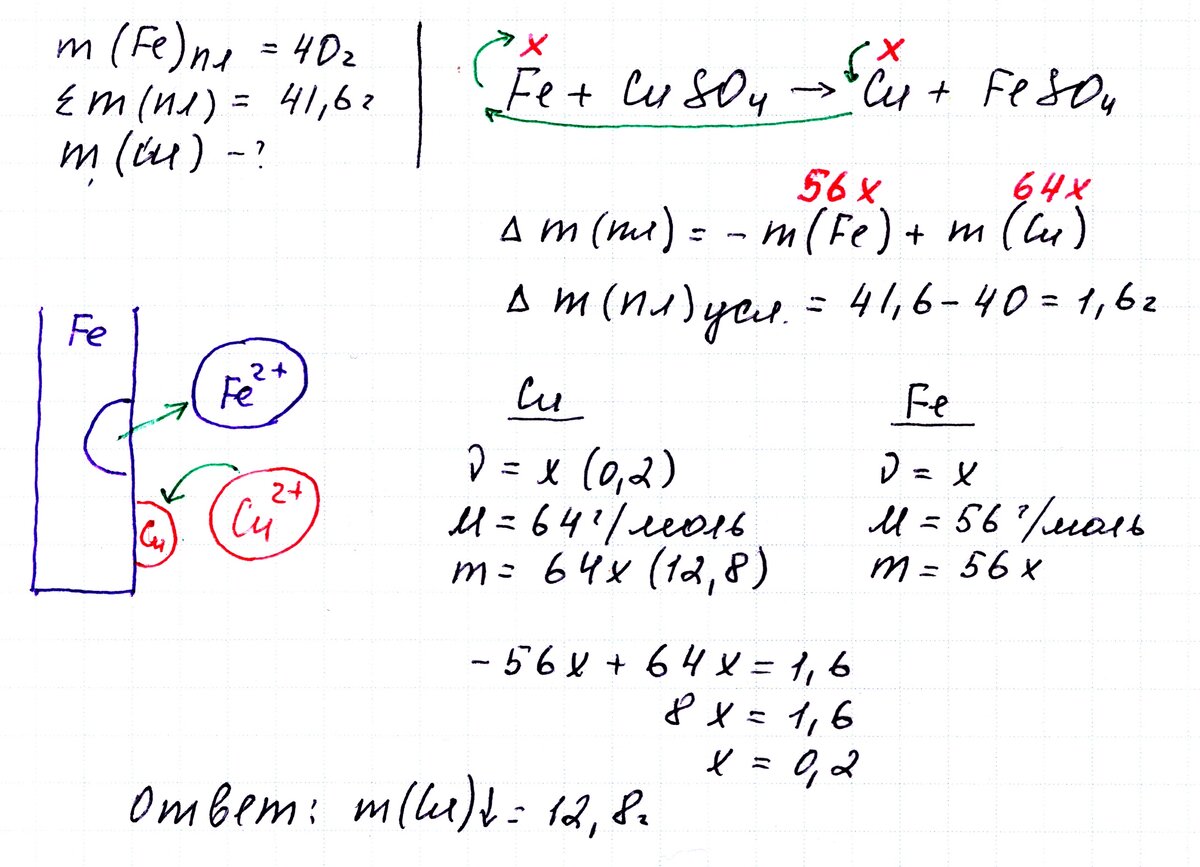 m (Fe)пл = 40г
Σ m (пл) = 41,6г
m (Cu) - ?
x x
Fe + CuSO₄ → Cu + FeSO₄
56x 64x
Δ m (пл) = - m (Fe) + m (Cu)
Δ m (пл) усл. = 41,6 - 40 = 1,6г
Fe
Fe²⁺
Cu²⁺
Cu
Cu Fe
ν = x (0,2) ν = x
M = 64 г/моль M = 56 г/моль
m = 64x (12,8) m = 56x
- 56x + 64x = 1,6
8x = 1,6
x = 0,2
Ответ: m(Cu)↓ = 12,8г